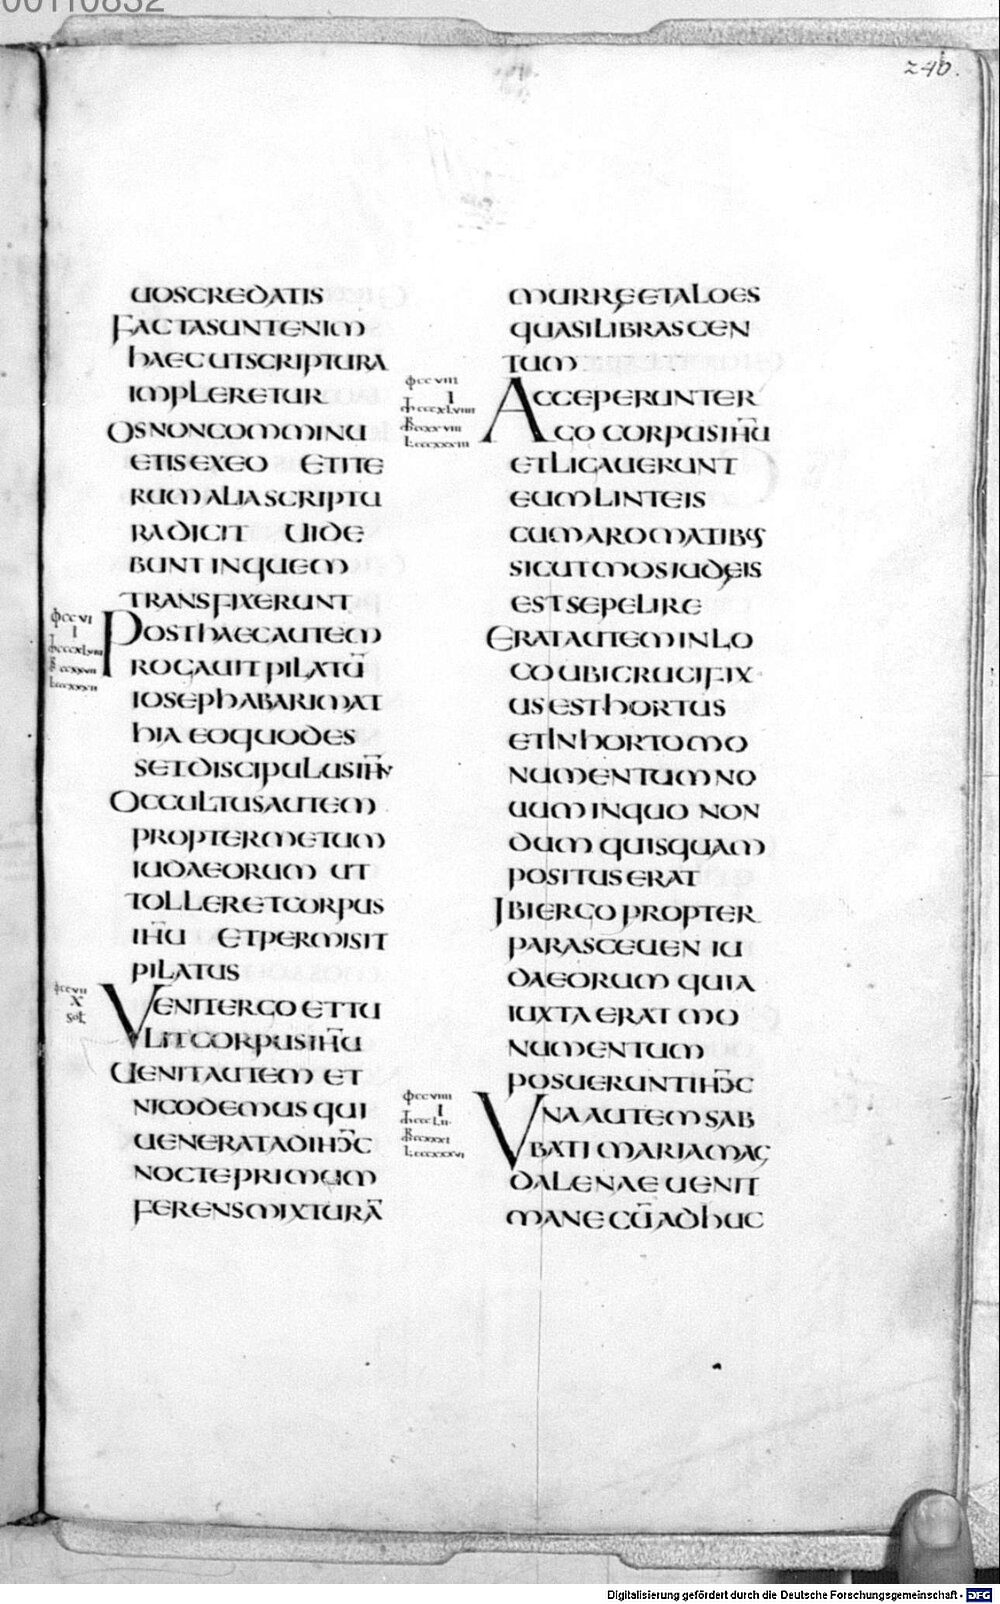 00110832
240.
UOSCREDATIS
FACTASUNTENIM
HAECUTSCRIPTURA
IMPLERETUR
OSNONCOMMINU
ETISEXEO ETITE
RUMALIASCRIPTU
RADICIT UIDE
BUNT INQUEM
TRANSFIXERUNT
POSTHAECAUTEM
ROGAUITPILATŪ
IOSEPHABARIMAT
HIA EOQUODES
SETDISCIPULUSIH̄U
OCCULTUSAUTEM
PROPTERMETUM
IUDAEORUM UT
TOLLERETCORPUS
IH̄U ETPERMISIT
PILATUS
VENITERGO ETTU
LITCORPUSIH̄U
UENITAUTEM ET
NICODEMUS QUI
UENERATADIH̄C
NOCTEPRIMUM
FERENSMIXTURĀ
MURRĘETALOES
QUASILIBRASCEN
TUM
ACCEPERUNTER
GO CORPUSIH̄U
ETLIGAUERUNT
EUMLINTEIS
CUMAROMATIBUS
SICUTMOSIUDĘIS
ESTSEPELIRE
ERATAUTEMINLO
COUBICRUCIFIX
USESTHORTUS
ETINHORTOMO
NUMENTUMNO
UUMINQUO NON
DUM QUISQUAM
POSITUSERAT
IBIERGOPROPTER
PARASCEUEN IU
DAEORUM QUIA
IUXTAERAT MO
NUMENTUM
POSUERUNTIH̄C
VNAAUTEMSAB
BATI MARIAMAG
DALENAE UENIT
MANECŪADHUC
Digitalisierung gefördert durch die Deutsche Forschungsgemeinschaft - DFG